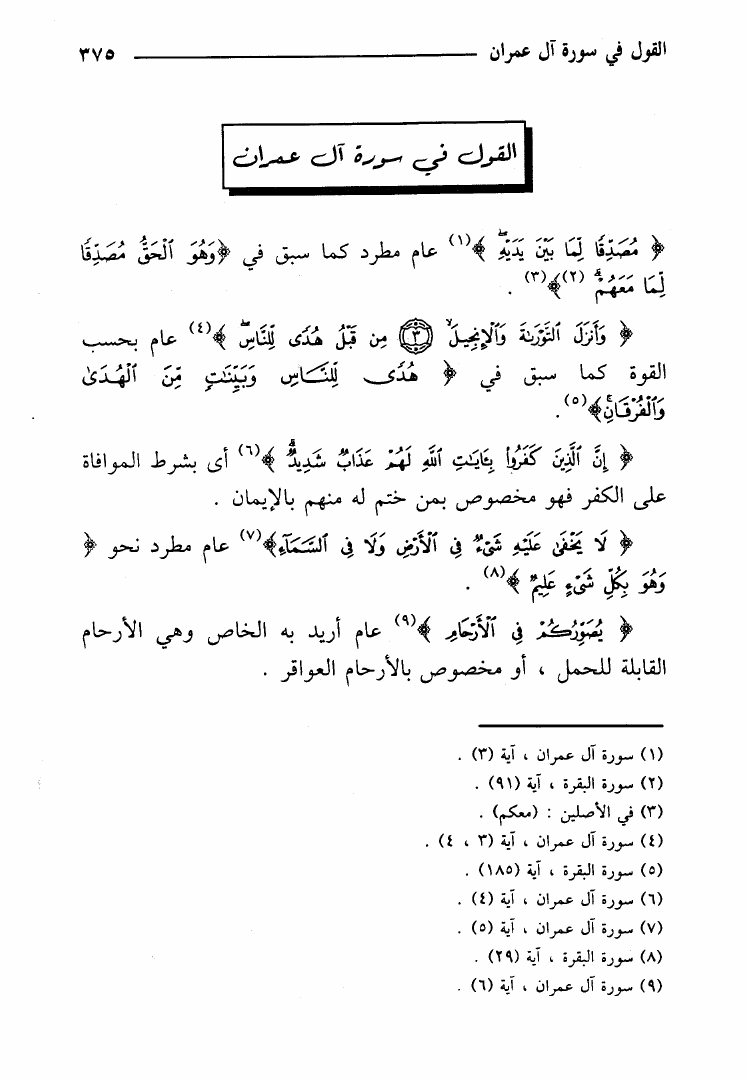 القول في سورة آل عمران ٣٧٥
القول في سورة آل عمران
﴿ مُصَدِّقًا لِّمَا بَيْنَ يَدَيْهِ ﴾(١) عام مطرد كما سبق في ﴿وَهُوَ ٱلْحَقُّ مُصَدِّقًا
لِّمَا مَعَهُمْ ۗ (٢)﴾(٣) .
﴿ وَأَنزَلَ ٱلتَّوْرَىٰةَ وَٱلْإِنجِيلَ ۙ ۝٣ مِن قَبْلُ هُدًى لِّلنَّاسِ ﴾(٤) عام بحسب
القوة كما سبق في ﴿ هُدًى لِّلنَّاسِ وَبَيِّنَٰتٍ مِّنَ ٱلْهُدَىٰ
وَٱلْفُرْقَانِ ۚ﴾(٥) .
﴿ إِنَّ ٱلَّذِينَ كَفَرُوا۟ بِـَٔايَٰتِ ٱللَّهِ لَهُمْ عَذَابٌ شَدِيدٌ ۗ ﴾(٦) أى بشرط الموافاة
على الكفر فهو مخصوص بمن ختم له منهم بالإيمان .
﴿ لَا يَخْفَىٰ عَلَيْهِ شَىْءٌ فِى ٱلْأَرْضِ وَلَا فِى ٱلسَّمَآءِ﴾(٧) عام مطرد نحو ﴿
وَهُوَ بِكُلِّ شَىْءٍ عَلِيمٌ ﴾(٨) .
﴿ يُصَوِّرُكُمْ فِى ٱلْأَرْحَامِ ﴾(٩) عام أريد به الخاص وهي الأرحام
القابلة للحمل ، أو مخصوص بالأرحام العواقر .
(١) سورة آل عمران ، آية (٣) .
(٢) سورة البقرة ، آية (٩١) .
(٣) في الأصلين : (معكم) .
(٤) سورة آل عمران ، آية (٣ ، ٤) .
(٥) سورة البقرة ، آية (١٨٥) .
(٦) سورة آل عمران ، آية (٤) .
(٧) سورة آل عمران ، آية (٥) .
(٨) سورة البقرة ، آية (٢٩) .
(٩) سورة آل عمران ، آية (٦) .